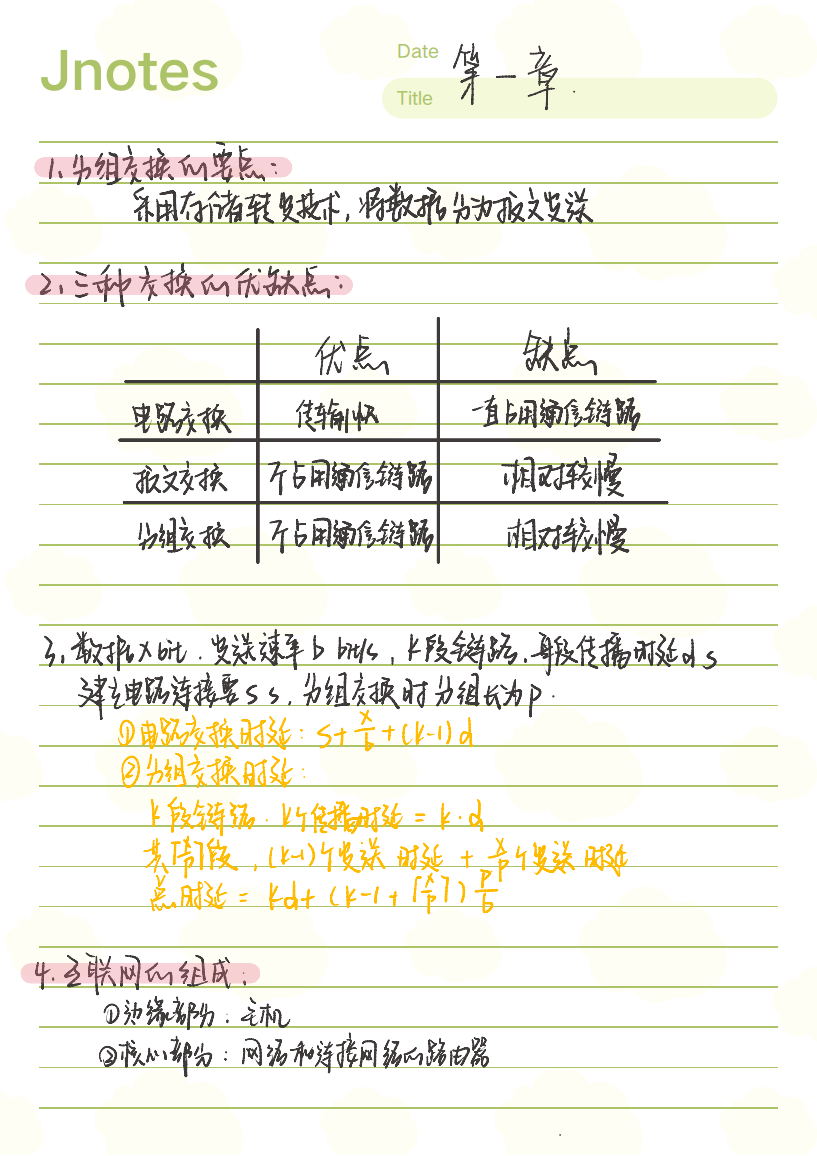 Jnotes
Date
Title
第一章.
1.分组交换的要点:
采用存储转发技术,将数据分为报文发送
2.三种交换的优缺点:
优点 缺点
电路交换 传输快 一直占用通信链路
报文交换 不占用通信链路 相对较慢
分组交换 不占用通信链路 相对较慢
3.数据x bit.发送速率b bit/s,k段链路.每段传播时延d s
建立电路连接要s s,分组交换时分组长为p.
①电路交换时延:s+x/b+(k-1)d
②分组交换时延:
k段链路.k个传播时延=k·d
共⌈x/p⌉段,(k-1)个发送时延+x/p个发送时延
总时延=kd+(k-1+⌈x/p⌉)p/b
4.互联网的组成:
①边缘部分:主机
②核心部分:网络和连接网络的路由器